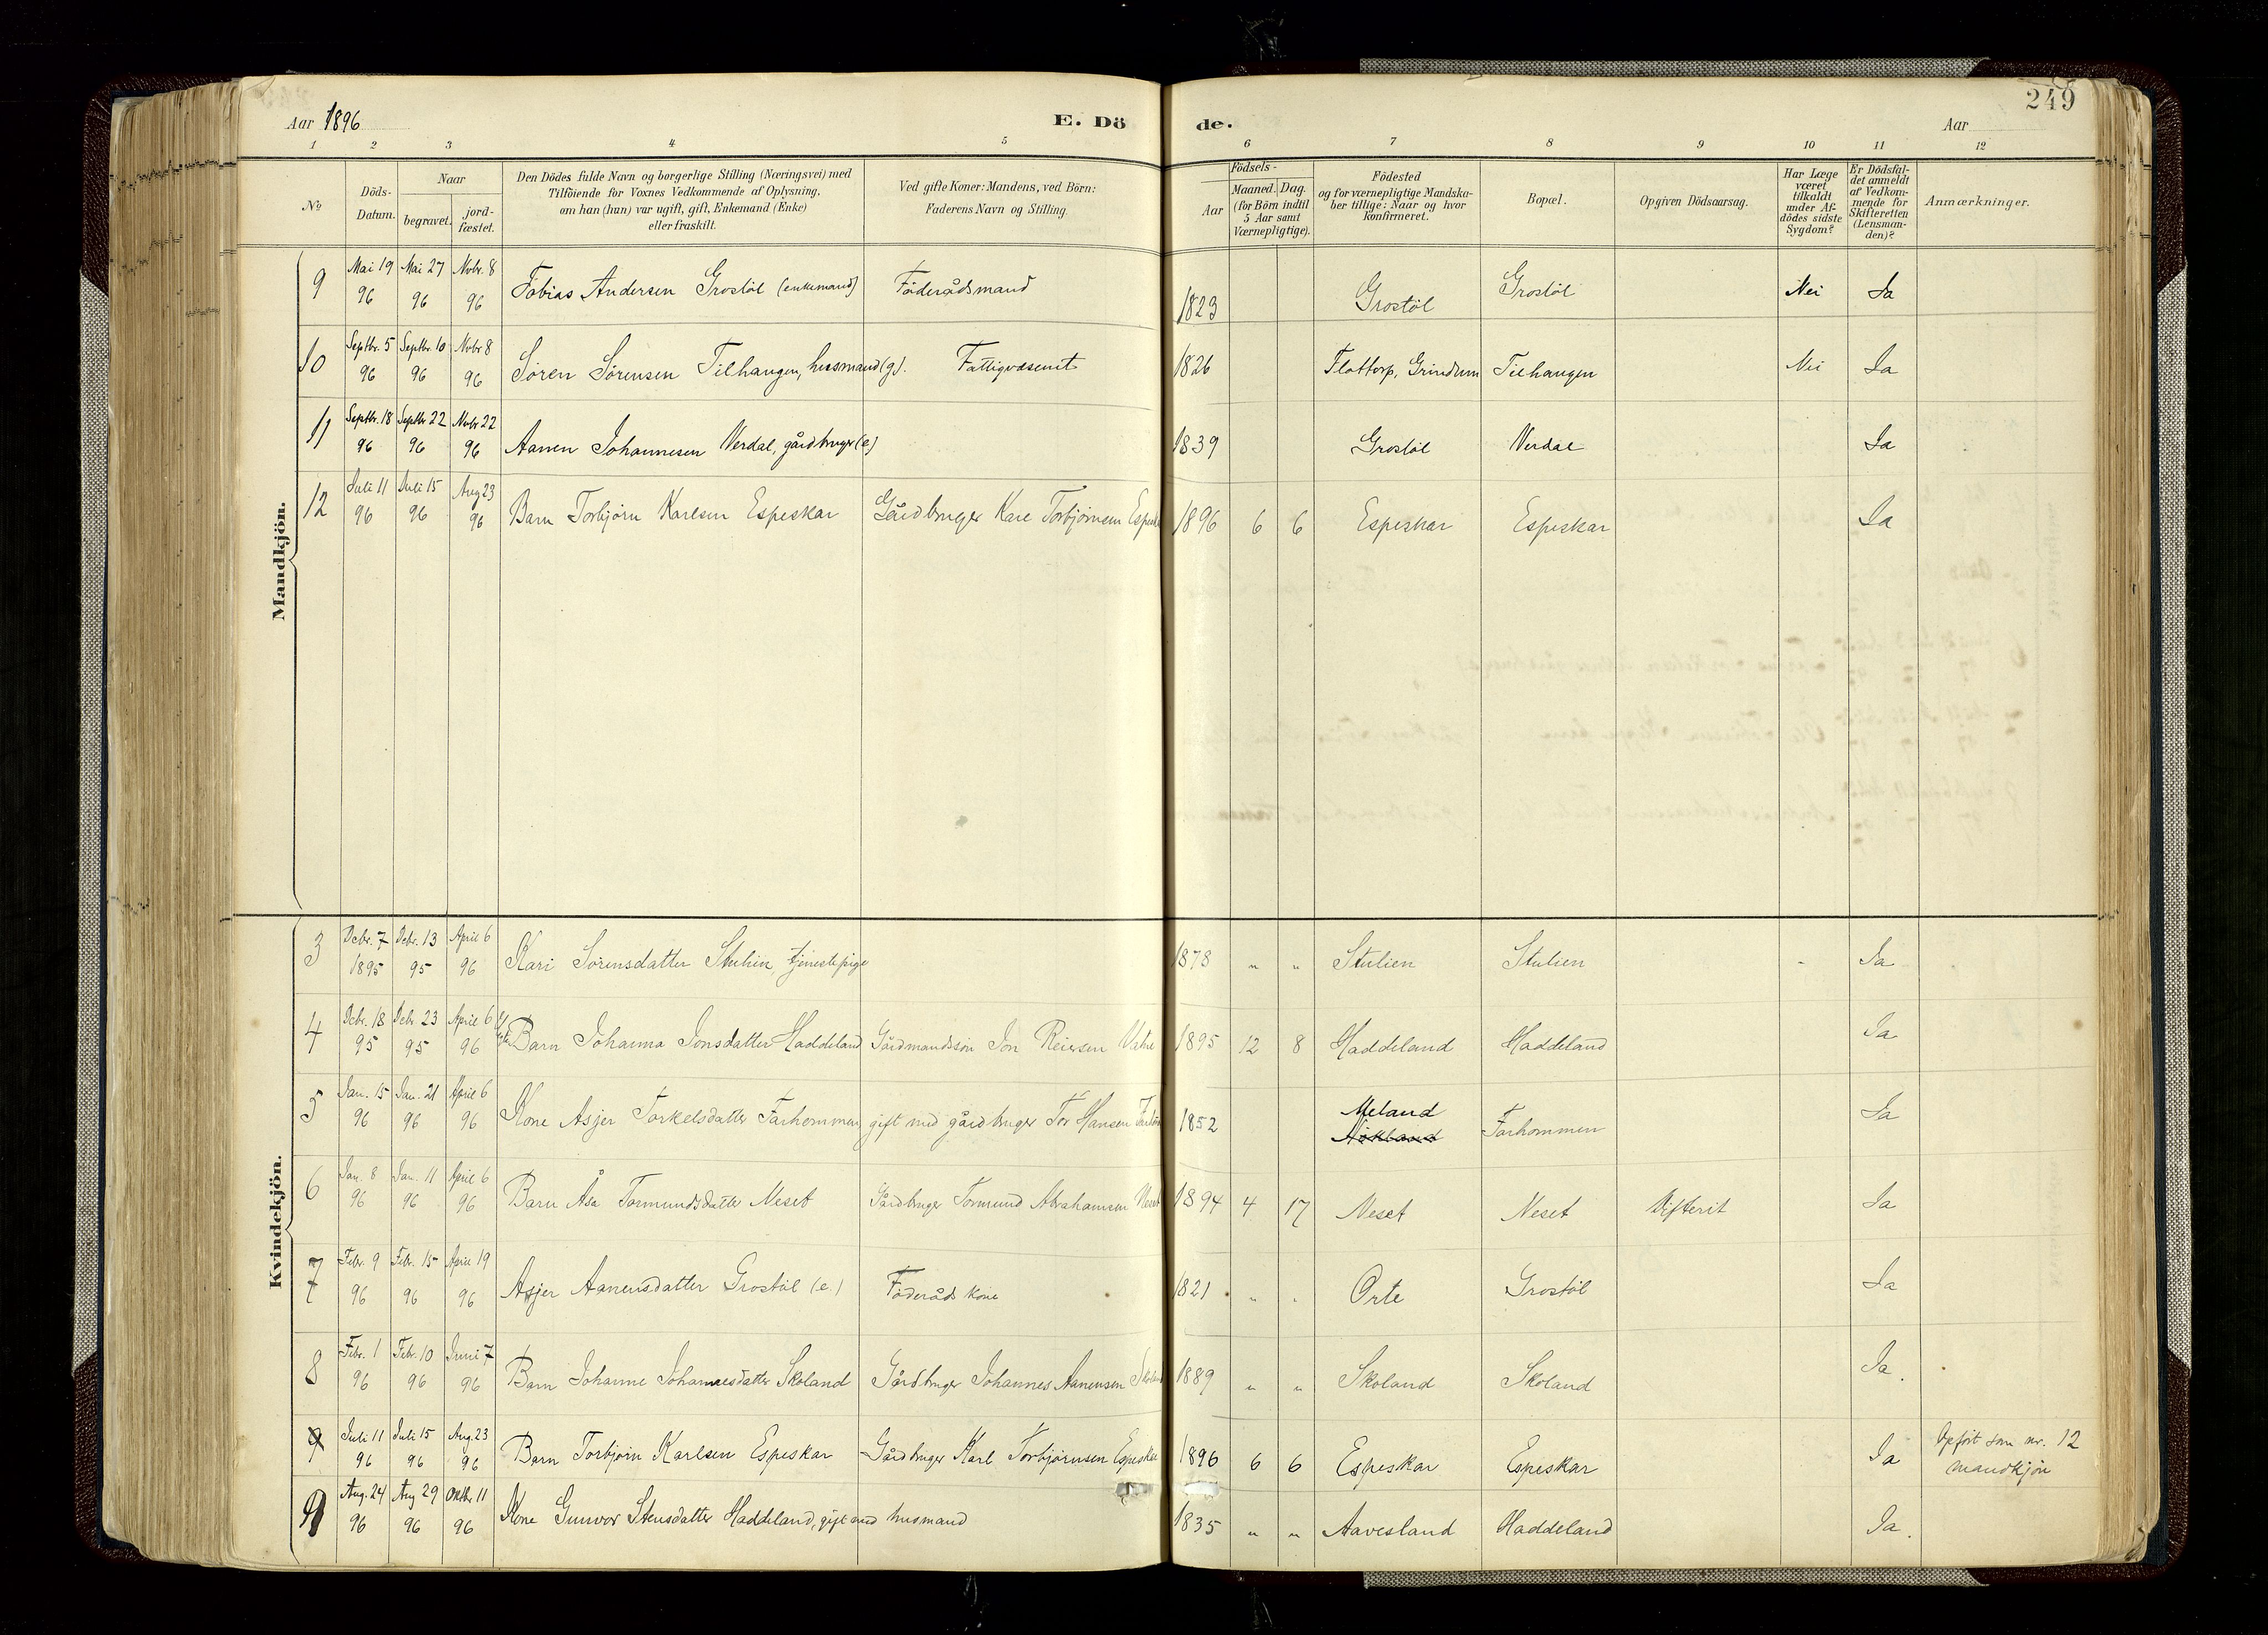 249
Aar 1896 E. Dö de. Aar
1 2 3 4 5 6 7 8 9 10 11 12
№ Döds-Datum. Naar begravet. jord-fæstet. Den Dödes fulde Navn og borgerlige Stilling (Næringsvei) med Tilföiende for Voxnes Vedkommende af Oplysning, om han (hun) var ugift, gift, Enkemand (Enke) eller fraskilt. Ved gifte Koner: Mandens, ved Börn: Faderens Navn og Stilling. Födsels- Aar Maaned. Dag. (for Börn indtil 5 Aar samt Værnepligtige). Födested og for værnepligtige Mandskaber tillige: Naar og hvor Konfirmeret. Bopæl. Opgiven Dödsaarsag. Har Læge været tilkaldt under Afdödes sidste Sygdom? Er Dödsfaldet anmeldt af Vedkommende for Skifteretten (Lensmanden)? Anmærkninger.
Mandkjön.
9 Mai 19 96 Mai 27 96 Novbr. 8 96 Tobias Andersen Grostöl (enkemand) Föderådsmand 1823 Grostöl Grostöl Nei Ja
10 Septbr. 5 96 Septbr. 10 96 Novbr 8 96 Sören Sörensen Tilhaugen, husmand (g). Fattigvæsenet 1826 Flottorp, Grindum Tilhaugen Nei Ja
11 Septbr. 18 96 Septbr 22 96 Novbr 22 96 Aanen Johannesen Verdal, gårdbruger (e) 1839 Grostöl Verdal Ja
12 Juli 11 96 Juli 15 96 Aug 23 96 Barn Torbjörn Karlsen Espeskar Gårdbruger Karl Torbjörnsen Espeskar 1896 6 6 Espeskar Espeskar Ja
Kvindekjön.
3 Debr. 7 1895 Debr. 13 95 April 6 96 Kari Sörensdatter Stulien, tjenestepige 1878 " " Stulien Stulien Ja
4 Debr. 18 95 Debr 23 95 April 6 96 Barn Johanna Jonsdatter Haddeland Gårdmandssön Jon Reiersen Vatne 1895 12 8 Haddeland Haddeland Ja
5 Jan. 15 96 Jan. 21 96 April 6 96 Kone Asjer Torkelsdatter Farhommen gift med gårdbruger Tor Hansen 1852 Meland Farhommen Ja
6 Jan. 8 96 Jan. 11 96 April 6 96 Barn Åsa Tormundsdatter Neset Gårdbruger Tormund Abrahamsen Neset 1894 4 17 Neset Neset Difterit Ja
7 Febr. 9 96 Febr. 15 96 April 19 96 Asjer Aanensdatter Grostöl (e.) Föderådskone 1821 " " Orte Grostöl Ja
8 Febr. 1 96 Febr. 10 96 Juni 7 96 Barn Johanne Johannesdatter Skoland Gårdbruger Johannes Aanensen Skoland 1889 " " Skoland Skoland Ja.
9 Juli 11 96 Juli 15 96 Aug. 23 96 Barn Torbjörn Karlsen Espeskar Gårdbruger Karl Torbjörnsen Espeskar 1896 6 6 Espeskar Espeskar Ja Opfört som nr. 12 mandkjön
9 Aug. 24 96 Aug 29 96 Oktbr 11 96 Kone Gunvor Stensdatter Haddeland, gift med husmand 1835 " " Aavesland Haddeland Ja.